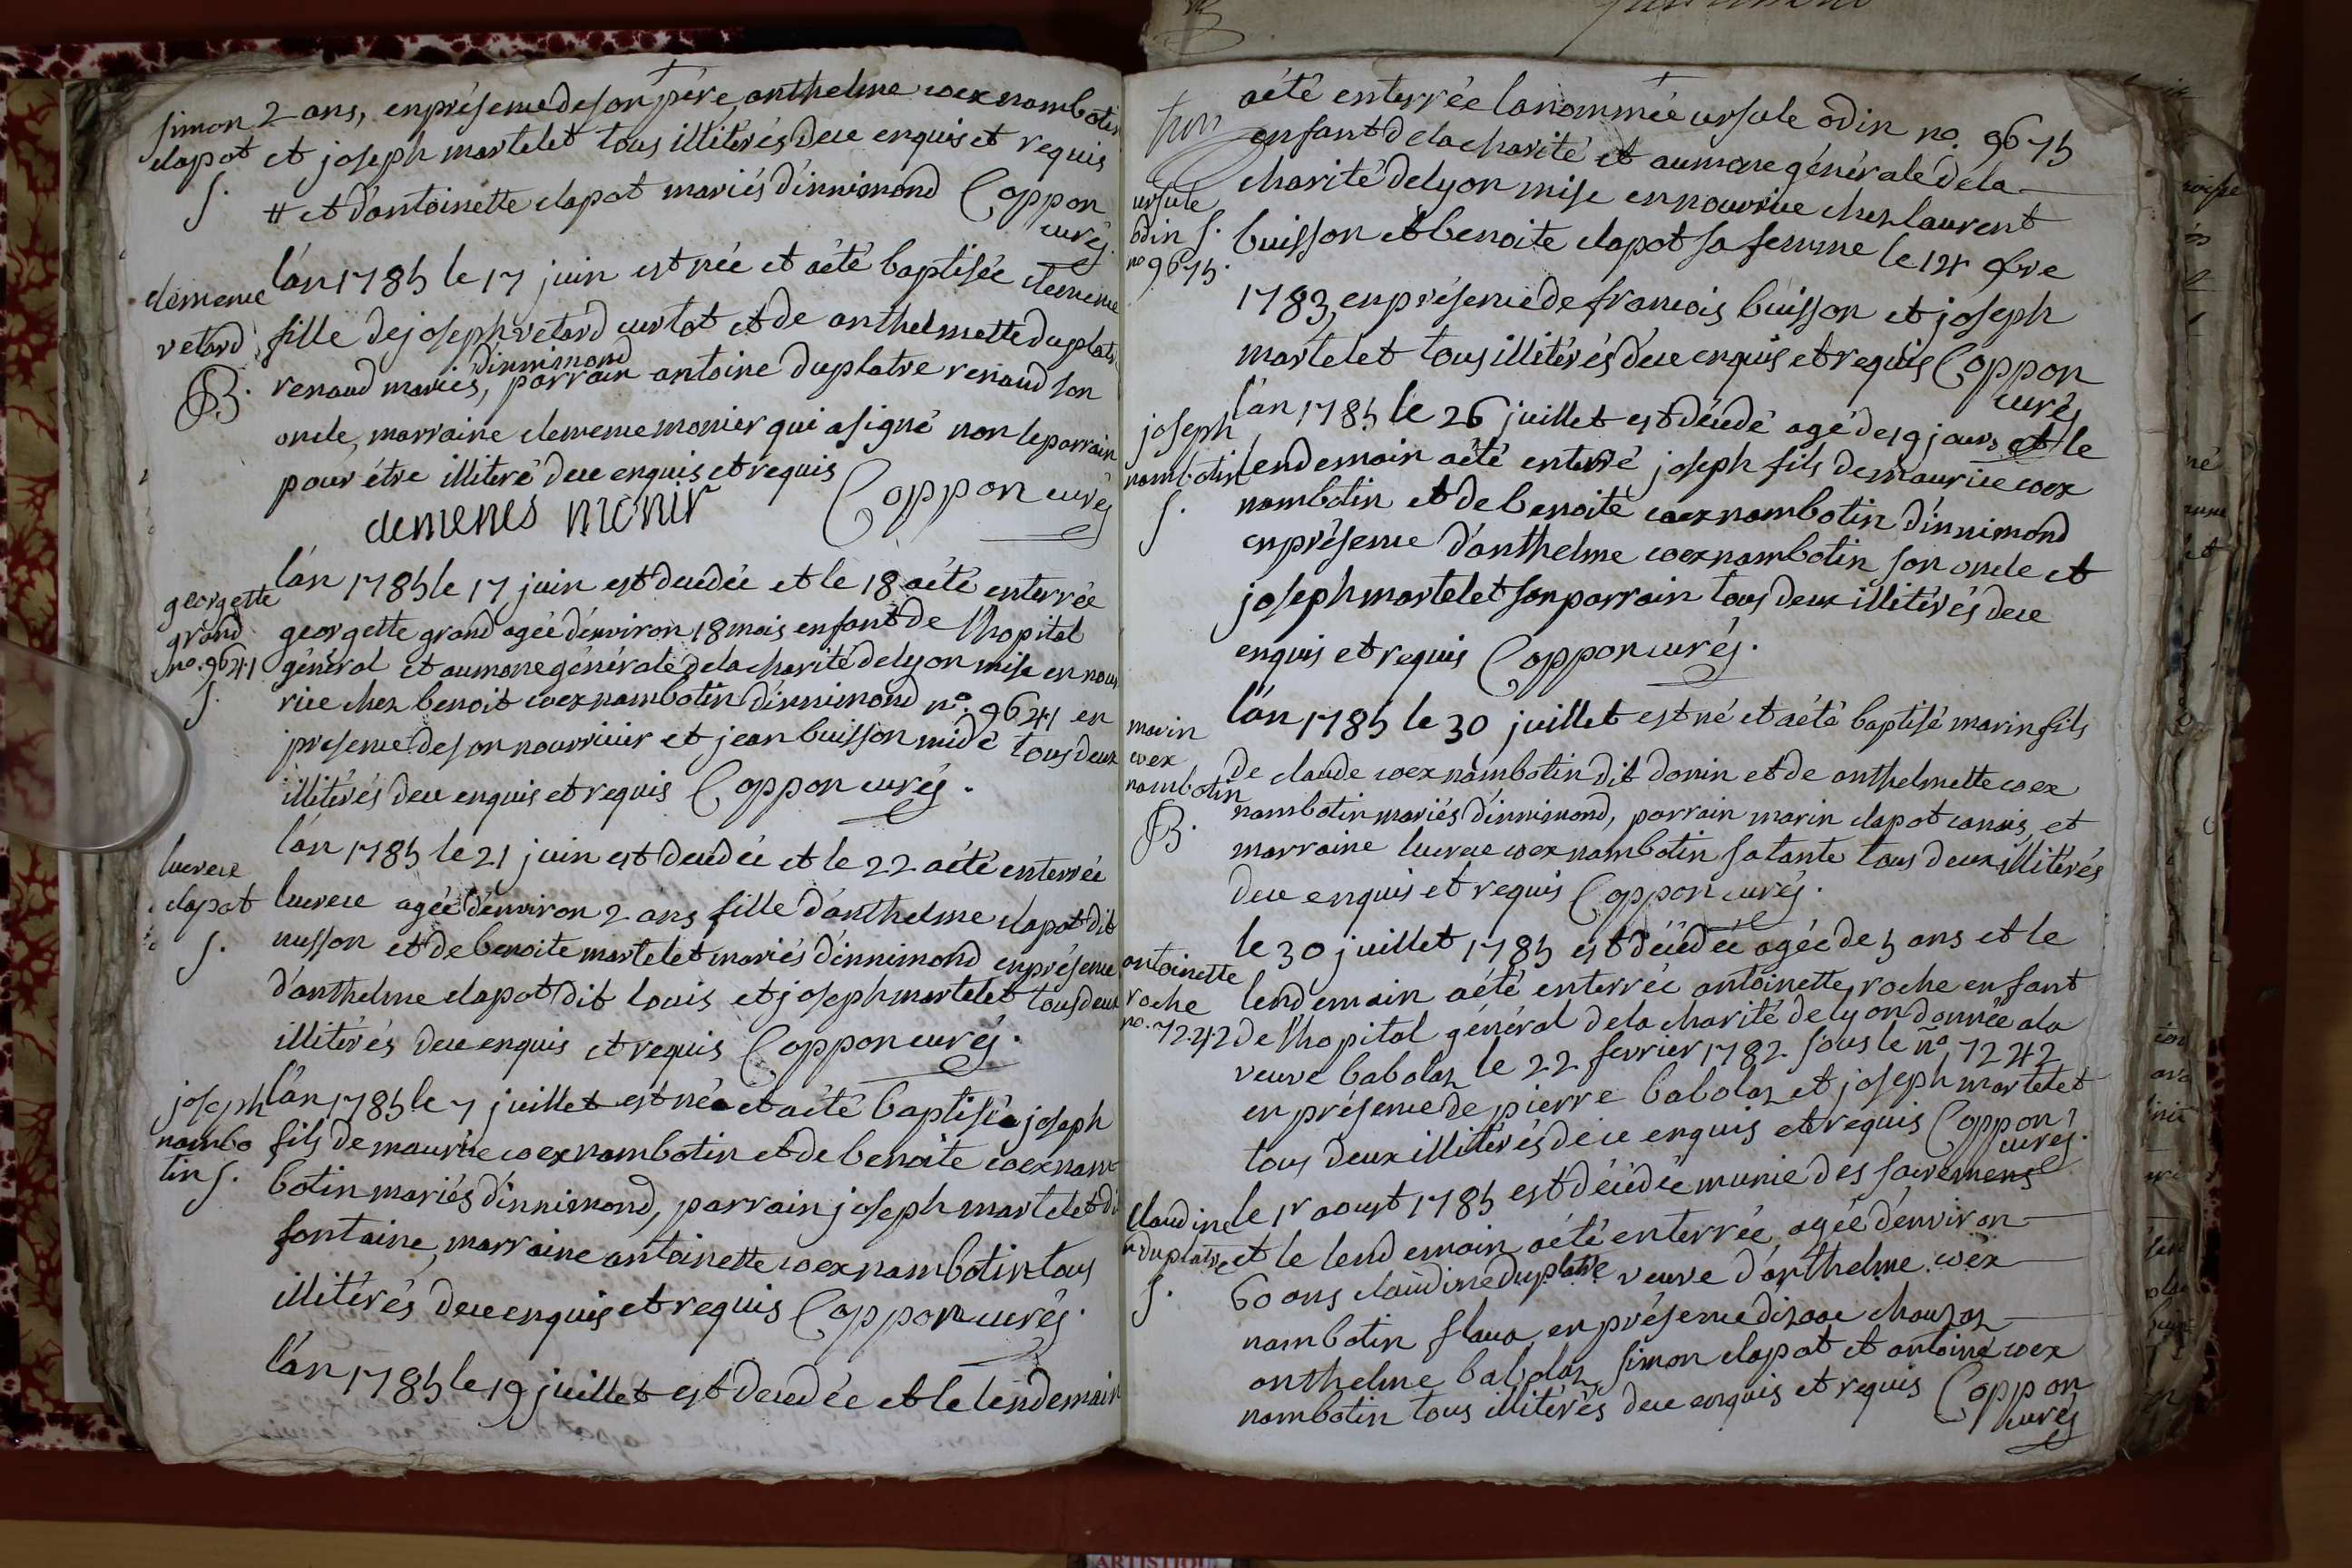 simon 2 ans, en présence de son père, anthelme coex nambotin
clapot et joseph martelet tous illitérés de ce enquis et requis
S. # et d'antoinette clapot mariés d'innimond Coppon
curé
l'an 1785 le 17 juin est née et a été baptisée clemence
clemence
retord fille de joseph retord curtet et de anthelmette duplatre
d'innimond
B. renaud mariés, parrain antoine duplatre renaud son
oncle, marraine clemence monier qui a signé non le parrain
pour étre illiteré de ce enquis et requis
clemenes monir Coppon curé
l'an 1785 le 17 juin est decedée et le 18 a été enterrée
georgette
grand georgette grand agée d'environ 18 mois enfant de l'hopital
no. 9641 général et aumone générale de la charité de lyon mise en nour
S. rice chez benoit coex nambotin d'innimond no. 9641 en
presence de son nourricier et jean buisson midé tous deux
illitérés de ce enquis et requis Coppon curé.
l'an 1785 le 21 juin est decedée et le 22 a été enterrée
lucrece
clapot lucrece agée d'environ 2 ans fille d'anthelme clapot dit
S. nusson et de benoite martelet mariés d'innimond en présence
d'anthelme clapot dit louis et joseph martelet tous deux
illitérés de ce enquis et requis Coppon curé.
joseph l'an 1785 le 7 juillet est né et a été baptisé joseph
nambo fils de maurice coex nambotin et de benoite coex nam
tin S. botin mariés d'innimond, parrain joseph martelet di
fontaine, marraine antoinette coex nambotin tous
illitérés de ce enquis et requis Coppon curé.
l'an 1785 le 19 juillet est decedée et le lendemain
a été enterrée la nommée ursule odin no. 9675
enfant de la charité et aumone générale de la
ursule charité de lyon mise en nourrice chez laurent
odin S. buisson et benoite clapot sa femme le 12
no 9675.
1783, en présence de francois buisson et joseph
martelet tous illitérés de ce enquis et requis Coppon
curé
l'an 1785 le 26 juillet est décédé agé de 19 jours et le
joseph
nambotin lendemain a été enterré joseph fils de maurice coex
S. nambotin et de benoite coex nambotin d'innimond
en présence d'anthelme coex nambotin son oncle et
joseph martelet son parrain tous deux illitérés de ce
enquis et requis Coppon curé.
l'an 1785 le 30 juillet est né et a été baptisé marin fils
marin
coex de claude coex nambotin dit donin et de anthelmette coex
nambotin
nambotin mariés d'innimond, parrain marin clapot et
B. marraine lucrece coex nambotin sa tante tous deux illitérés
de ce enquis et requis Coppon curé.
le 30 juillet 1785 est décédée agée de 5 ans et le
antoinette
roche lendemain a été enterrée antoinette roche enfant
no. 7242 de l'hopital général de la charité de lyon donnée a la
veuve babolaz le 22 fevrier 1782 sous le no 7242
en présence de pierre babolaz et joseph martelet
tous deux illitérés de ce enquis et requis Coppon
curé.
le 1r aoust 1785 est décédée munie des sacremens
claudine
duplatre et le lendemain a été enterrée agée d'environ
S. 60 ans claudine duplatre veuve d'anthelme coex
nambotin flava en présence d'izaac chauzaz
anthelme babolaz, simon clapot et antoine coex
nambotin tous illitérés de ce enquis et requis Coppon
curé